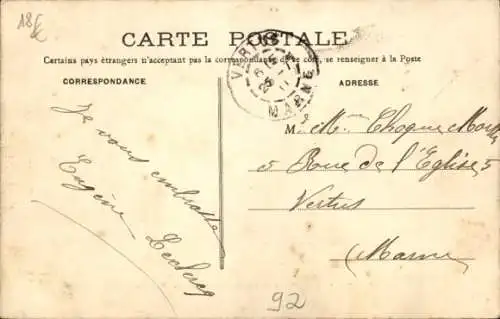 18€
CARTE POSTALE
Certains pays étrangers n'acceptant pas la correspondance de ce côté, se renseigner à la Poste
CORRESPONDANCE
ADRESSE
MARNE
Je vous embrasse
Eugène Leclercq
M. Me Choque
5 Rue de l'Eglise 5
Vertus
Marne
92